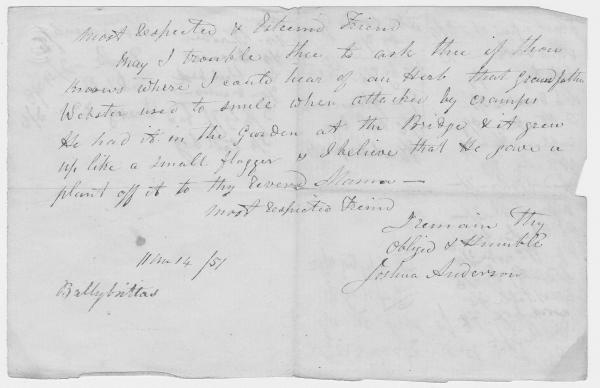 Most Respected & Esteemd Friend
May I trouble thee to ask thee if thou
knows where I could hear of an Herb that Grandfather
Webster used to smele when attacked by cramps
He had it in the Garden at the Bridge & it grew
up like a small flagger & I believe that He gave a
plant off it to thy Reverd Mama —
Most Respected Friend
I remain Thy
Obliged & Humble
Joshua Anderson
11 mo 14 /51
Ballybrittas